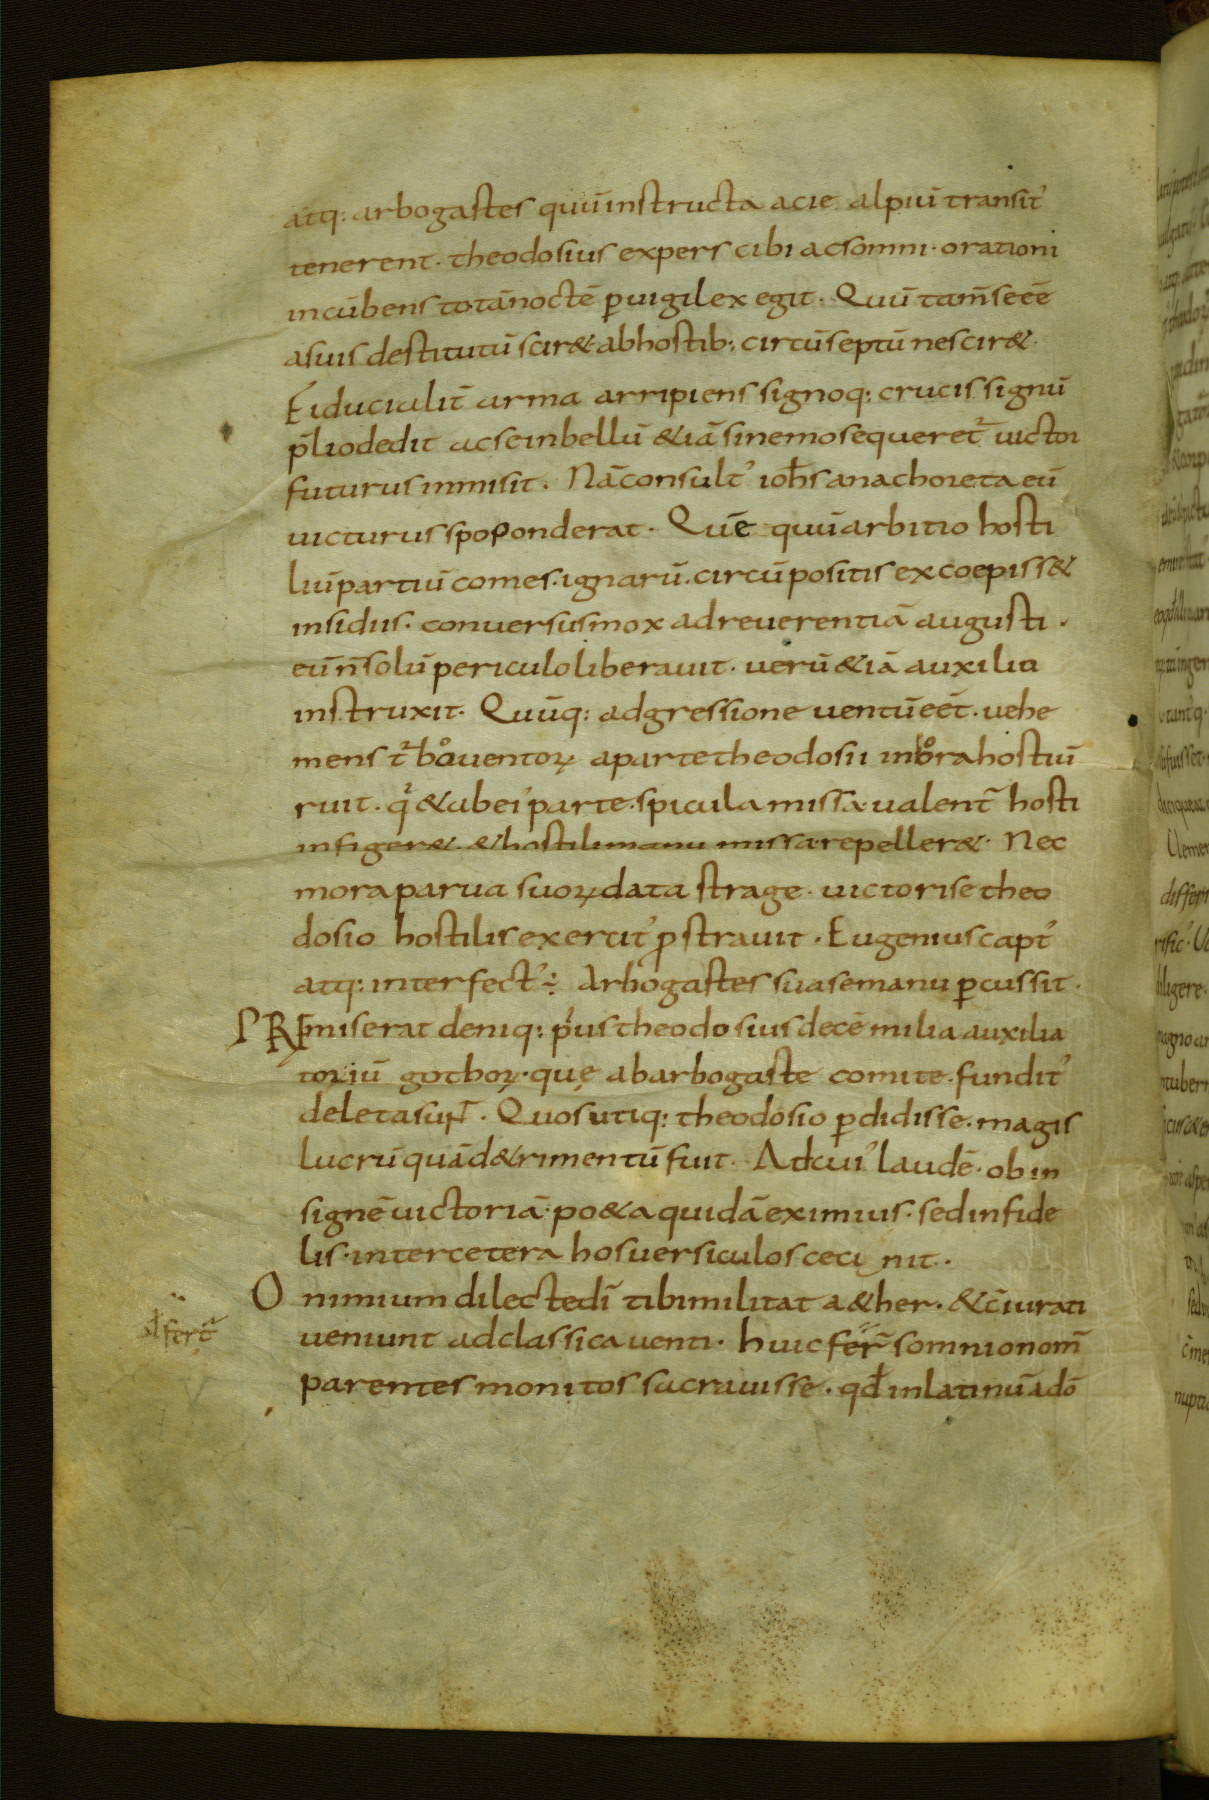 atq: arbogastes quū instructa acie alpiū transit᾽
tenerent· theodosius expers cibi acsomni· orationi
incūbens totānoctē ꝑuigilex egit· Quū tam̄seēē
asuis destitutū scir& abhostib; circūseptū nescir&·
Fiducialit̄ arma arripiens signoq: crucis signū
p̄liodedit acseinbellū &iā sinemosequeret̄ uictor
futurus inmisit· Nāconsult᾽ ioh̄s anachoreta eū
uicturus spoponderat· Quē quū arbitio hosti
liū partiū comes· ignarū· circūpositis excoepiss&
insidiis· conuersusmox adreuerentiā augusti·
eūn̄solū periculoliberauit· uerū &iā auxilia
instruxit· Quūq: adgressione uentū eēt· uehe
mens t̄bo uentoꝝ apartetheodosii inora hostiū
ruit· q &abei᾽ parte· spicula missa ualent̄ hosti
infiger& &hostilimanu missa repeller&· Nec
mora parua suoꝝ data strage· uictorise theo
dosio hostilis exercit᾽ ꝓstrauit· Eugenius capt᾽
atq: interfect᾽ ÷ Arbogastes suasemanu ꝑcussit·
PRęmiserat deniq: p᾽us theodosius decē milia auxilia
toriū gothoꝝ· quę abarbogaste comite· fundit᾽
deletasunt̄· Quos utiq: theodosio ꝑdidisse· magis
lucrū quād&rimentū fuit· Adcui᾽ laudē· ob in
signē uictoriā· po&a quidā eximius· sed infide
lis· intercetera hos uersiculos ceci nit·
O nimium dilectedī tibimilitat a&her· &c̄iurati
ueniunt adclassica uenti· huic fer̄ somnionom̄
parentes monitos sacrauisse· qđ inlatinū adō
fert̄